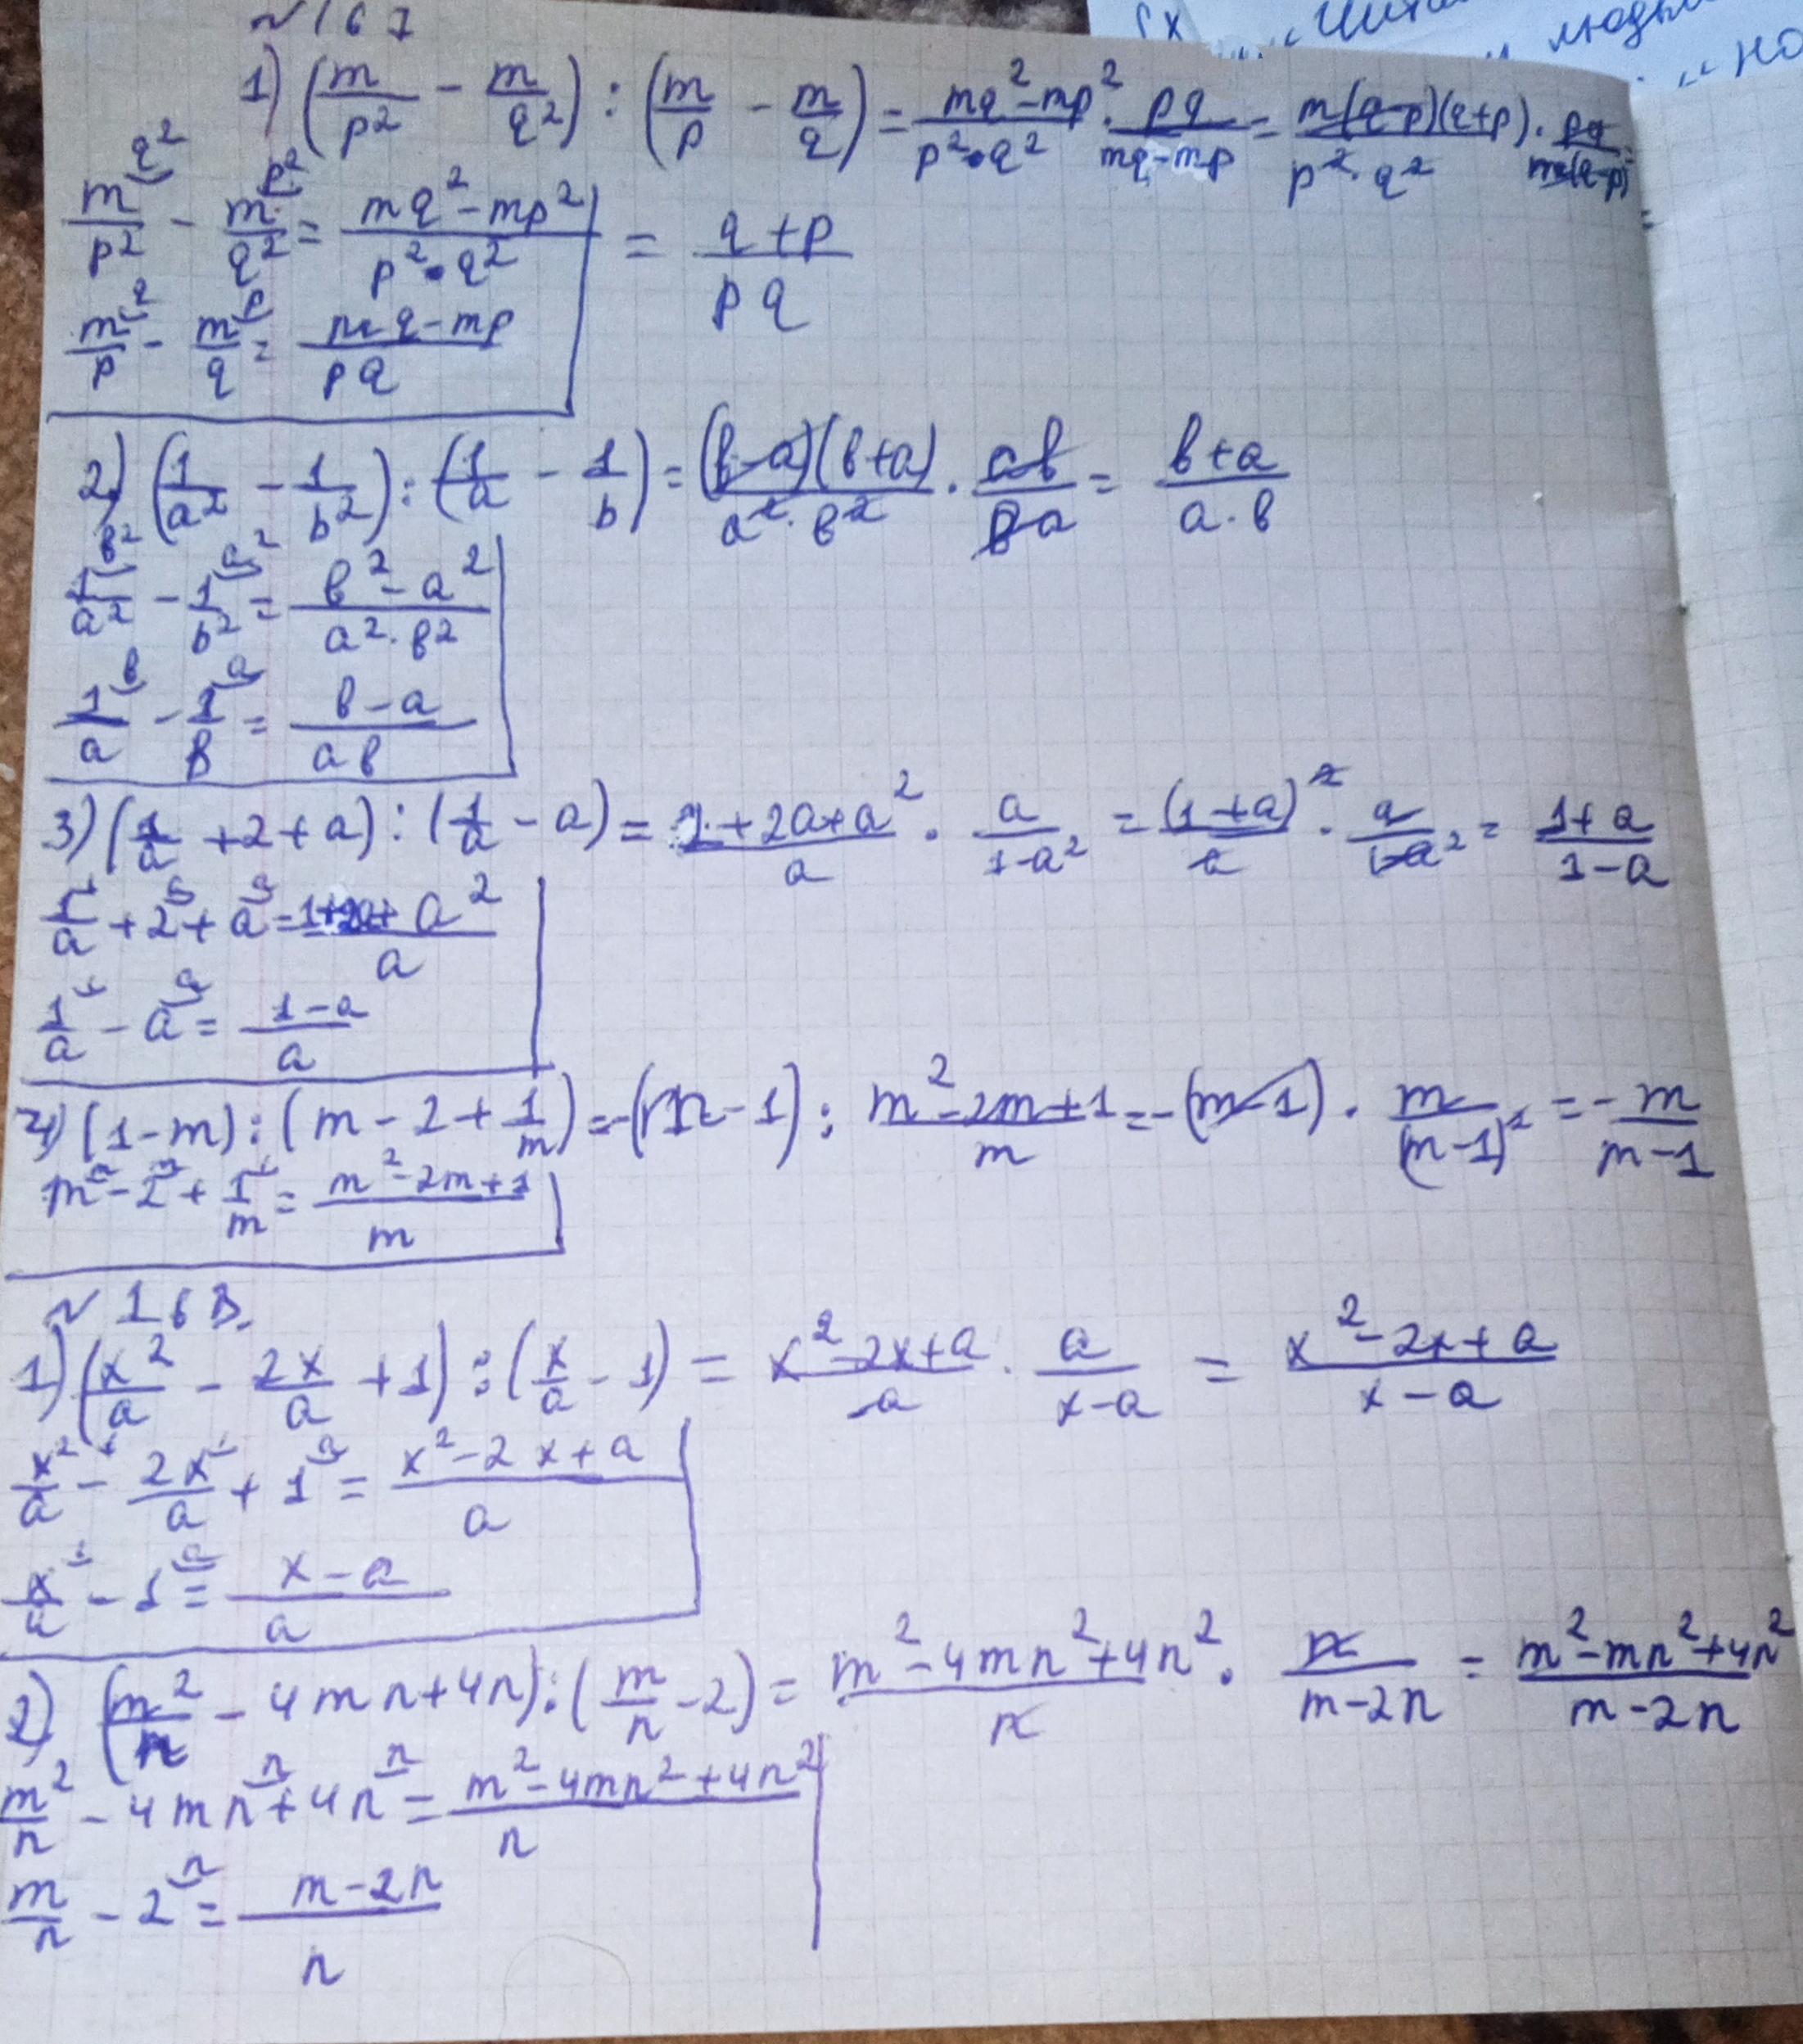 N167
1) (m/p² - m/q²) : (m/p - m/q) = (mq² - mp²)/(p²·q²) · pq/(mq - mp) = m(q-p)(q+p)/(p²·q²) · pq/(m(q-p)) =
m/p² - m/q² = (mq² - mp²)/(p²·q²)
= (q+p)/(pq)
m/p - m/q = (mq - mp)/(pq)
2) (1/a² - 1/b²) : (1/a - 1/b) = (b-a)(b+a)/(a²·b²) · ab/(b-a) = (b+a)/(a·b)
1/a² - 1/b² = (b² - a²)/(a²·b²)
1/a - 1/b = (b-a)/(ab)
3) (1/a + 2 + a) : (1/a - a) = (1+2a+a²)/a · a/(1-a²) = (1+a)²/a · a/(1-a²) = (1+a)/(1-a)
1/a + 2 + a = (1+2a+a²)/a
1/a - a = (1-a)/a
4) (1-m) : (m - 2 + 1/m) = -(m-1) : (m²-2m+1)/m = -(m-1) · m/(m-1)² = - m/(m-1)
m - 2 + 1/m = (m²-2m+1)/m
N168.
1) (x²/a - 2x/a + 1) : (x/a - 1) = (x²-2x+a)/a · a/(x-a) = (x²-2x+a)/(x-a)
x²/a - 2x/a + 1 = (x²-2x+a)/a
x/a - 1 = (x-a)/a
2) (m²/n - 4mn+4n) : (m/n - 2) = (m²-4mn²+4n²)/n · n/(m-2n) = (m²-mn²+4n²)/(m-2n)
m²/n - 4mn + 4n = (m²-4mn²+4n²)/n
m/n - 2 = (m-2n)/n